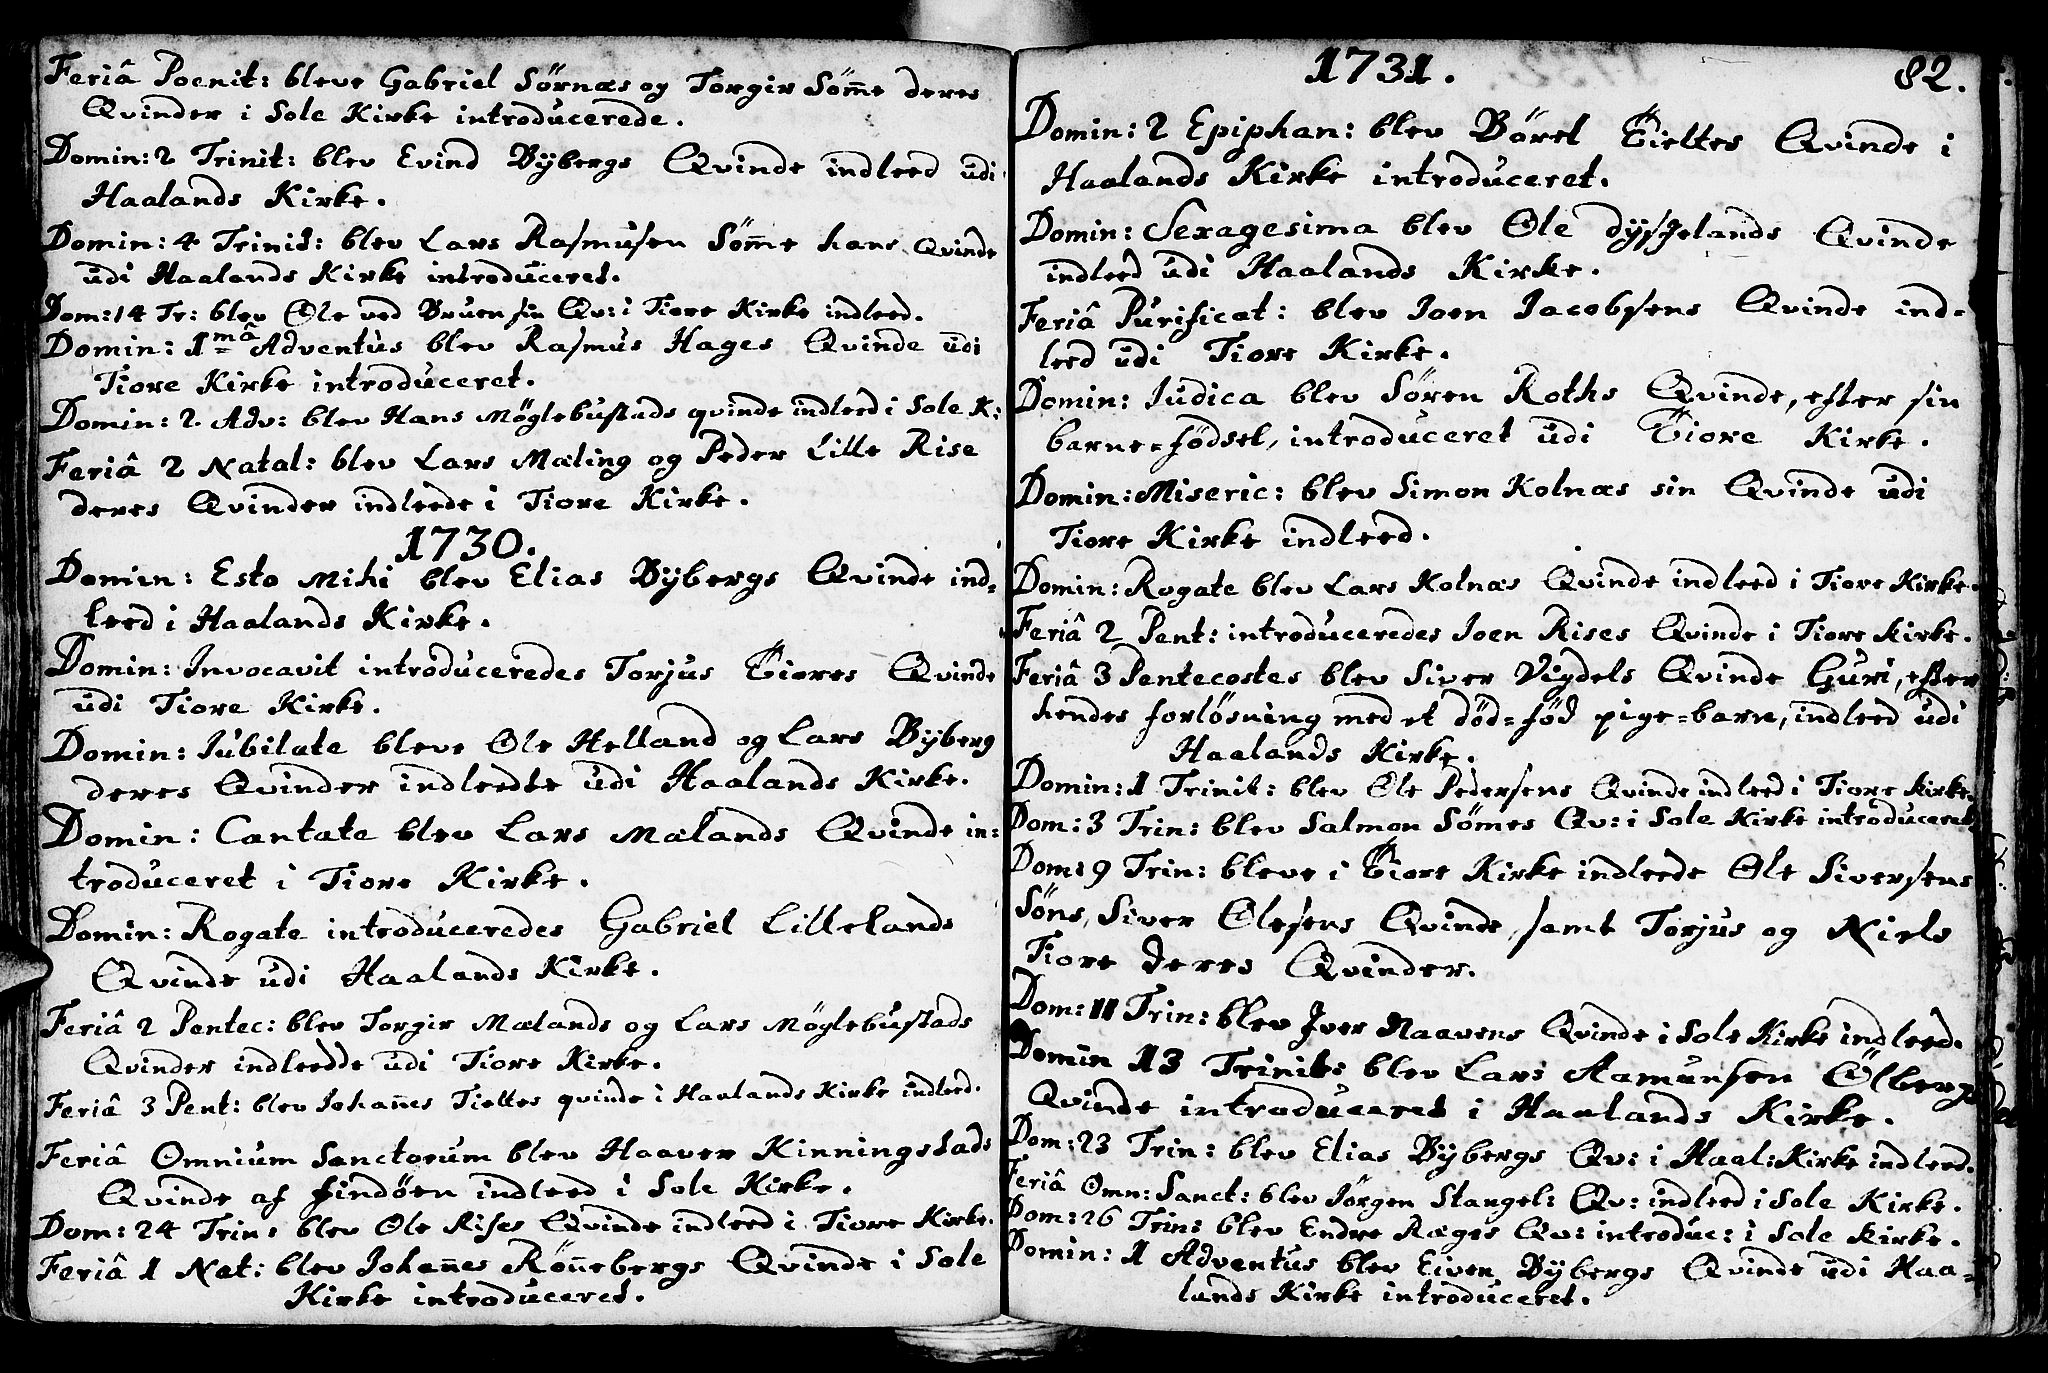 Feriâ Poenit: bleve Gabriel Sörnæs og Torgir Söm̄e deres
Qvinder i Sole Kirke introducerede.
Domin: 2 Trinit: blev Evind Bÿbergs Qvinde indleed udi
Haalands Kirke.
Domin: 4 Trinit: blev Lars Rasmusen Söm̄e hans Qvinde
udi Haalands Kirke introduceret.
Dom: 14 Tr: blev Ole ved Bruen sin Qv: i Tiore Kirke indleed.
Domin: 1mâ Adventus blev Rasmus Hages Qvinde udi
Tiore Kirke introduceret.
Domin: 2. Adv: blev Hans Möglebustads qvinde indleed i Sole K:
Feriâ 2 Natal: blev Lars Mæling og Peder Lille Rise
deres Qvinder indleede i Tiore Kirke.
1730.
Domin: Esto Mihi blev Elias Bÿbergs Qvinde ind=
leed i Haalands Kirke.
Domin: Invocavit introduceredes Torjus Tiores Qvinde
udi Tiore Kirke.
Domin: Jubilate bleve Ole Helland og Lars Bÿberg
deres Qvinder indleedte udi Haalands Kirke.
Domin: Cantate blev Lars Mælands Qvinde in:
troduceret i Tiore Kirke.
Domin: Rogate introduceredes Gabriel Lillelands
Qvinde udi Haalands Kirke.
Feriâ 2 Pentec: blev Torgir Mælands og Lars Möglebustads
Qvinder indleedde udi Tiore Kirke.
Feriâ 3 Pent: blev Johan̄es Tieltes qvinde i Haalands Kirke indleed.
Feriâ Omnium Sanctorum blev Haaver Kinningstads
Qvinde af findöen indleed i Sole Kirke.
Dom: 24 Trin: blev Ole Rises Qvinde indleed i Tiore Kirke.
Feriâ 1 Nat: blev Johan̄es Rön̄ebergs Qvinde i Sole
Kirke introduceret.
1731. 82.
Domin: 2 Epiphan: blev Börel Tieltes Qvinde i
Haalands Kirke introduceret.
Domin: Sexagesima blev Ole Dysjelands Qvinde
indleed udi Haalands Kirke.
Feriâ Purificat: blev Joen Jacobsens Qvinde ind=
leed udi Tiore Kirke.
Domin: Judica blev Sören Roths Qvinde, efter sin
barne=födsel, introduceret udi Tiore Kirke.
Domin: Miseric: blev Simon Kolnæs sin Qvinde udi
Tiore Kirke indleed.
Domin: Rogate blev Lars Kolnæs Qvinde indleed i Tiore Kirke.
Feriâ 2 Pent: introduceredes Joen Rises Qvinde i Tiore kirke.
Feriâ 3 Pentecostes blev Siver Vigdels Qvinde Guri, efter
hendes forlösning med et död=fød pige=barn, indleed udi
Haalands Kirke.
Domin: 1 Trinit: blev Ole Pedersens Qvinde indleed i Tiore kirke.
Dom: 3 Trin: blev Salmon Sömes Qv: i Sole Kirke introduceret.
Dom: 9 Trin: bleve i Tiore Kirke indleede Ole Siversens
Söns, Siver Olesens Qvinde, samt Torjus og Niels
Tiore deres Qvinder.
Dom: 11 Trin: blev Iver Naavens Qvinde i Sole Kirke indleed.
Domin 13 Trinit: blev Lars Aamunsen Ölbergs
Qvinde introduceret i Haalands Kirke.
Dom: 23 Trin: blev Elias Bÿbergs Qv: i Haal: Kirke indleed.
Feriâ Omn: Sanct: blev Jörgen Stangel: Qv: indleed i Sole Kirke.
Dom: 26 Trin: blev Endre Ræges Qv: introduc: i Sole kirke.
Domin: 1 Adventus blev Eiven Bÿbergs Qvinde udi Haa=
lands Kirke introduceret.